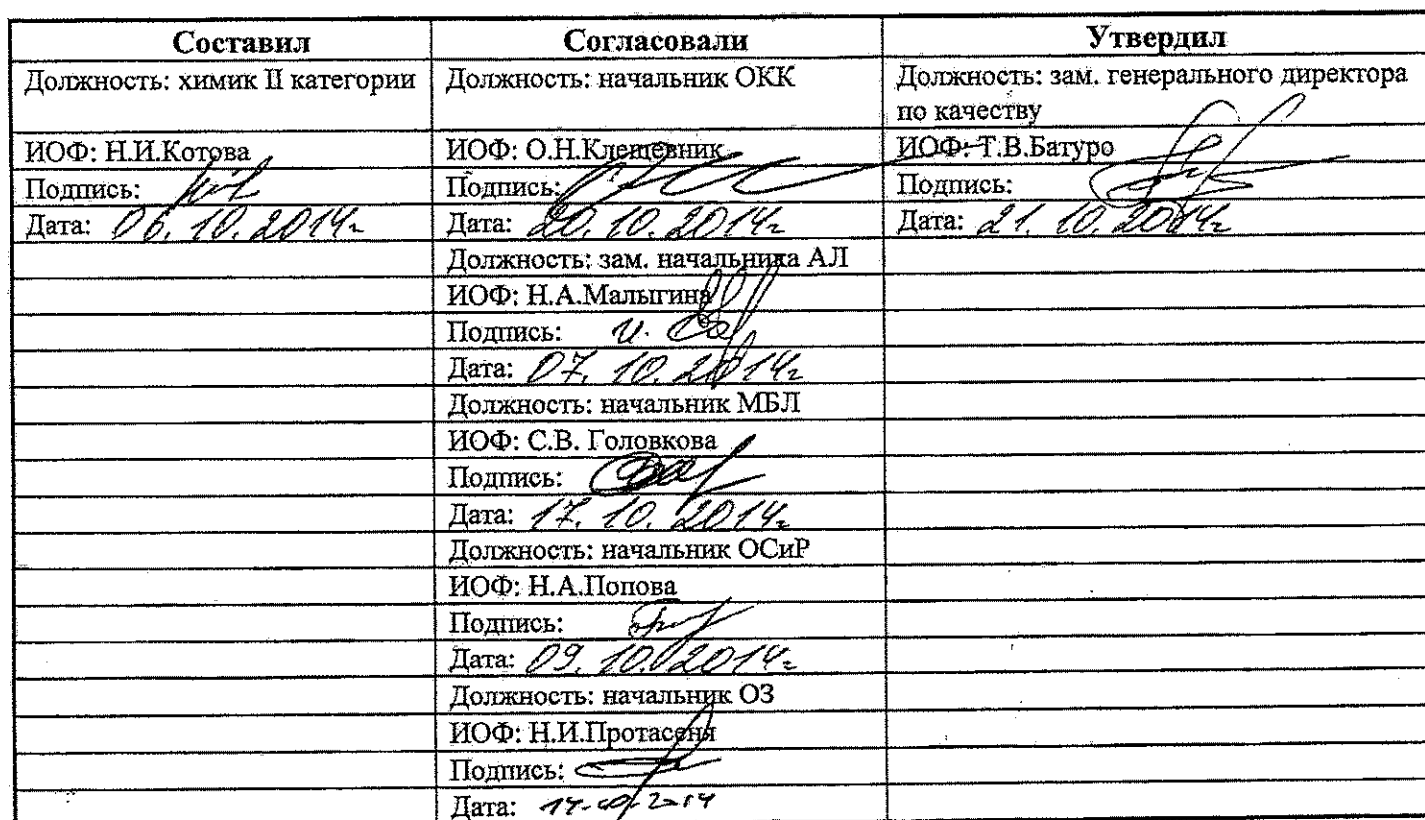 Составил Согласовали Утвердил
Должность: химик II категории Должность: начальник ОКК Должность: зам. генерального директора
по качеству
ИОФ: Н.И.Котова ИОФ: О.Н.Клещевник ИОФ: Т.В.Батуро
Подпись: Подпись: Подпись:
Дата: 06.10.2014г Дата: 20.10.2014г Дата: 21.10.2014г
Должность: зам. начальника АЛ
ИОФ: Н.А.Малыгина
Подпись:
Дата: 07.10.2014г
Должность: начальник МБЛ
ИОФ: С.В. Головкова
Подпись:
Дата: 17.10.2014г
Должность: начальник ОСиР
ИОФ: Н.А.Попова
Подпись:
Дата: 09.10.2014г
Должность: начальник ОЗ
ИОФ: Н.И.Протасеня
Подпись:
Дата: